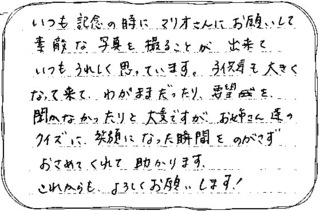 いつも記念の時にマリオさんにお願いして
素敵な写真を撮ることが出来て
いつもうれしく思っています。子供達も大きく
なって来て、わがままだったり、要望を
聞かなかったりと大変ですが、お姉さん達の
クイズに、笑顔になった瞬間をのがさず
おさめてくれて助かります。
これからも、よろしくお願いします!